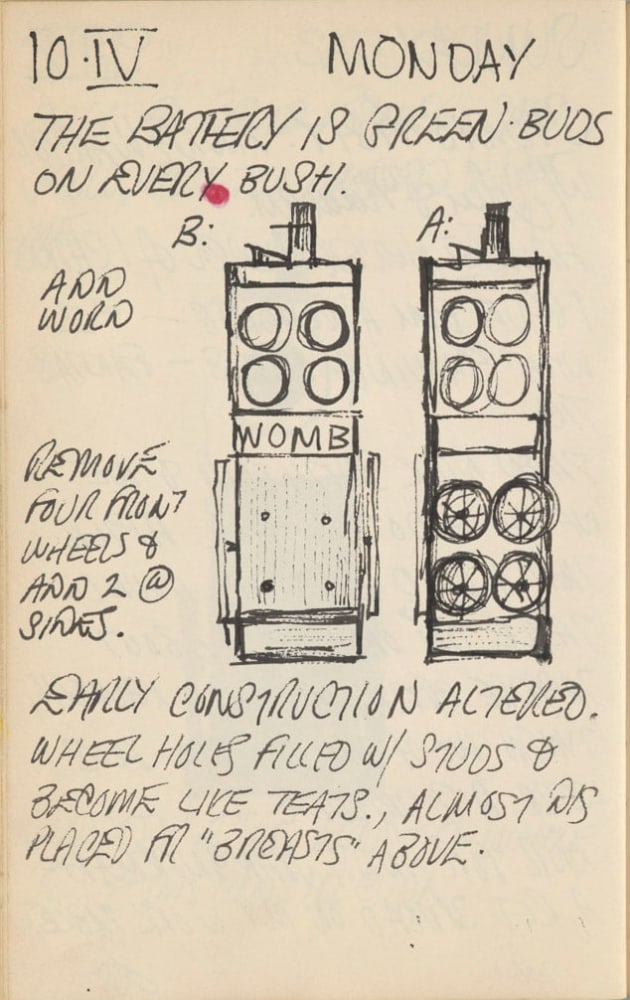 10·IV MONDAY
THE BATTERY IS GREEN·BUDS
ON EVERY BUSH.
B: A:
ADD
WORD
WOMB
REMOVE
FOUR FRONT
WHEELS &
ADD 2 @
SIDES.
EARLY CONSTRUCTION ALTERED.
WHEEL HOLES FILLED W/ STUDS &
BECOME LIKE TEATS., ALMOST DIS
PLACED FR "BREASTS" ABOVE.